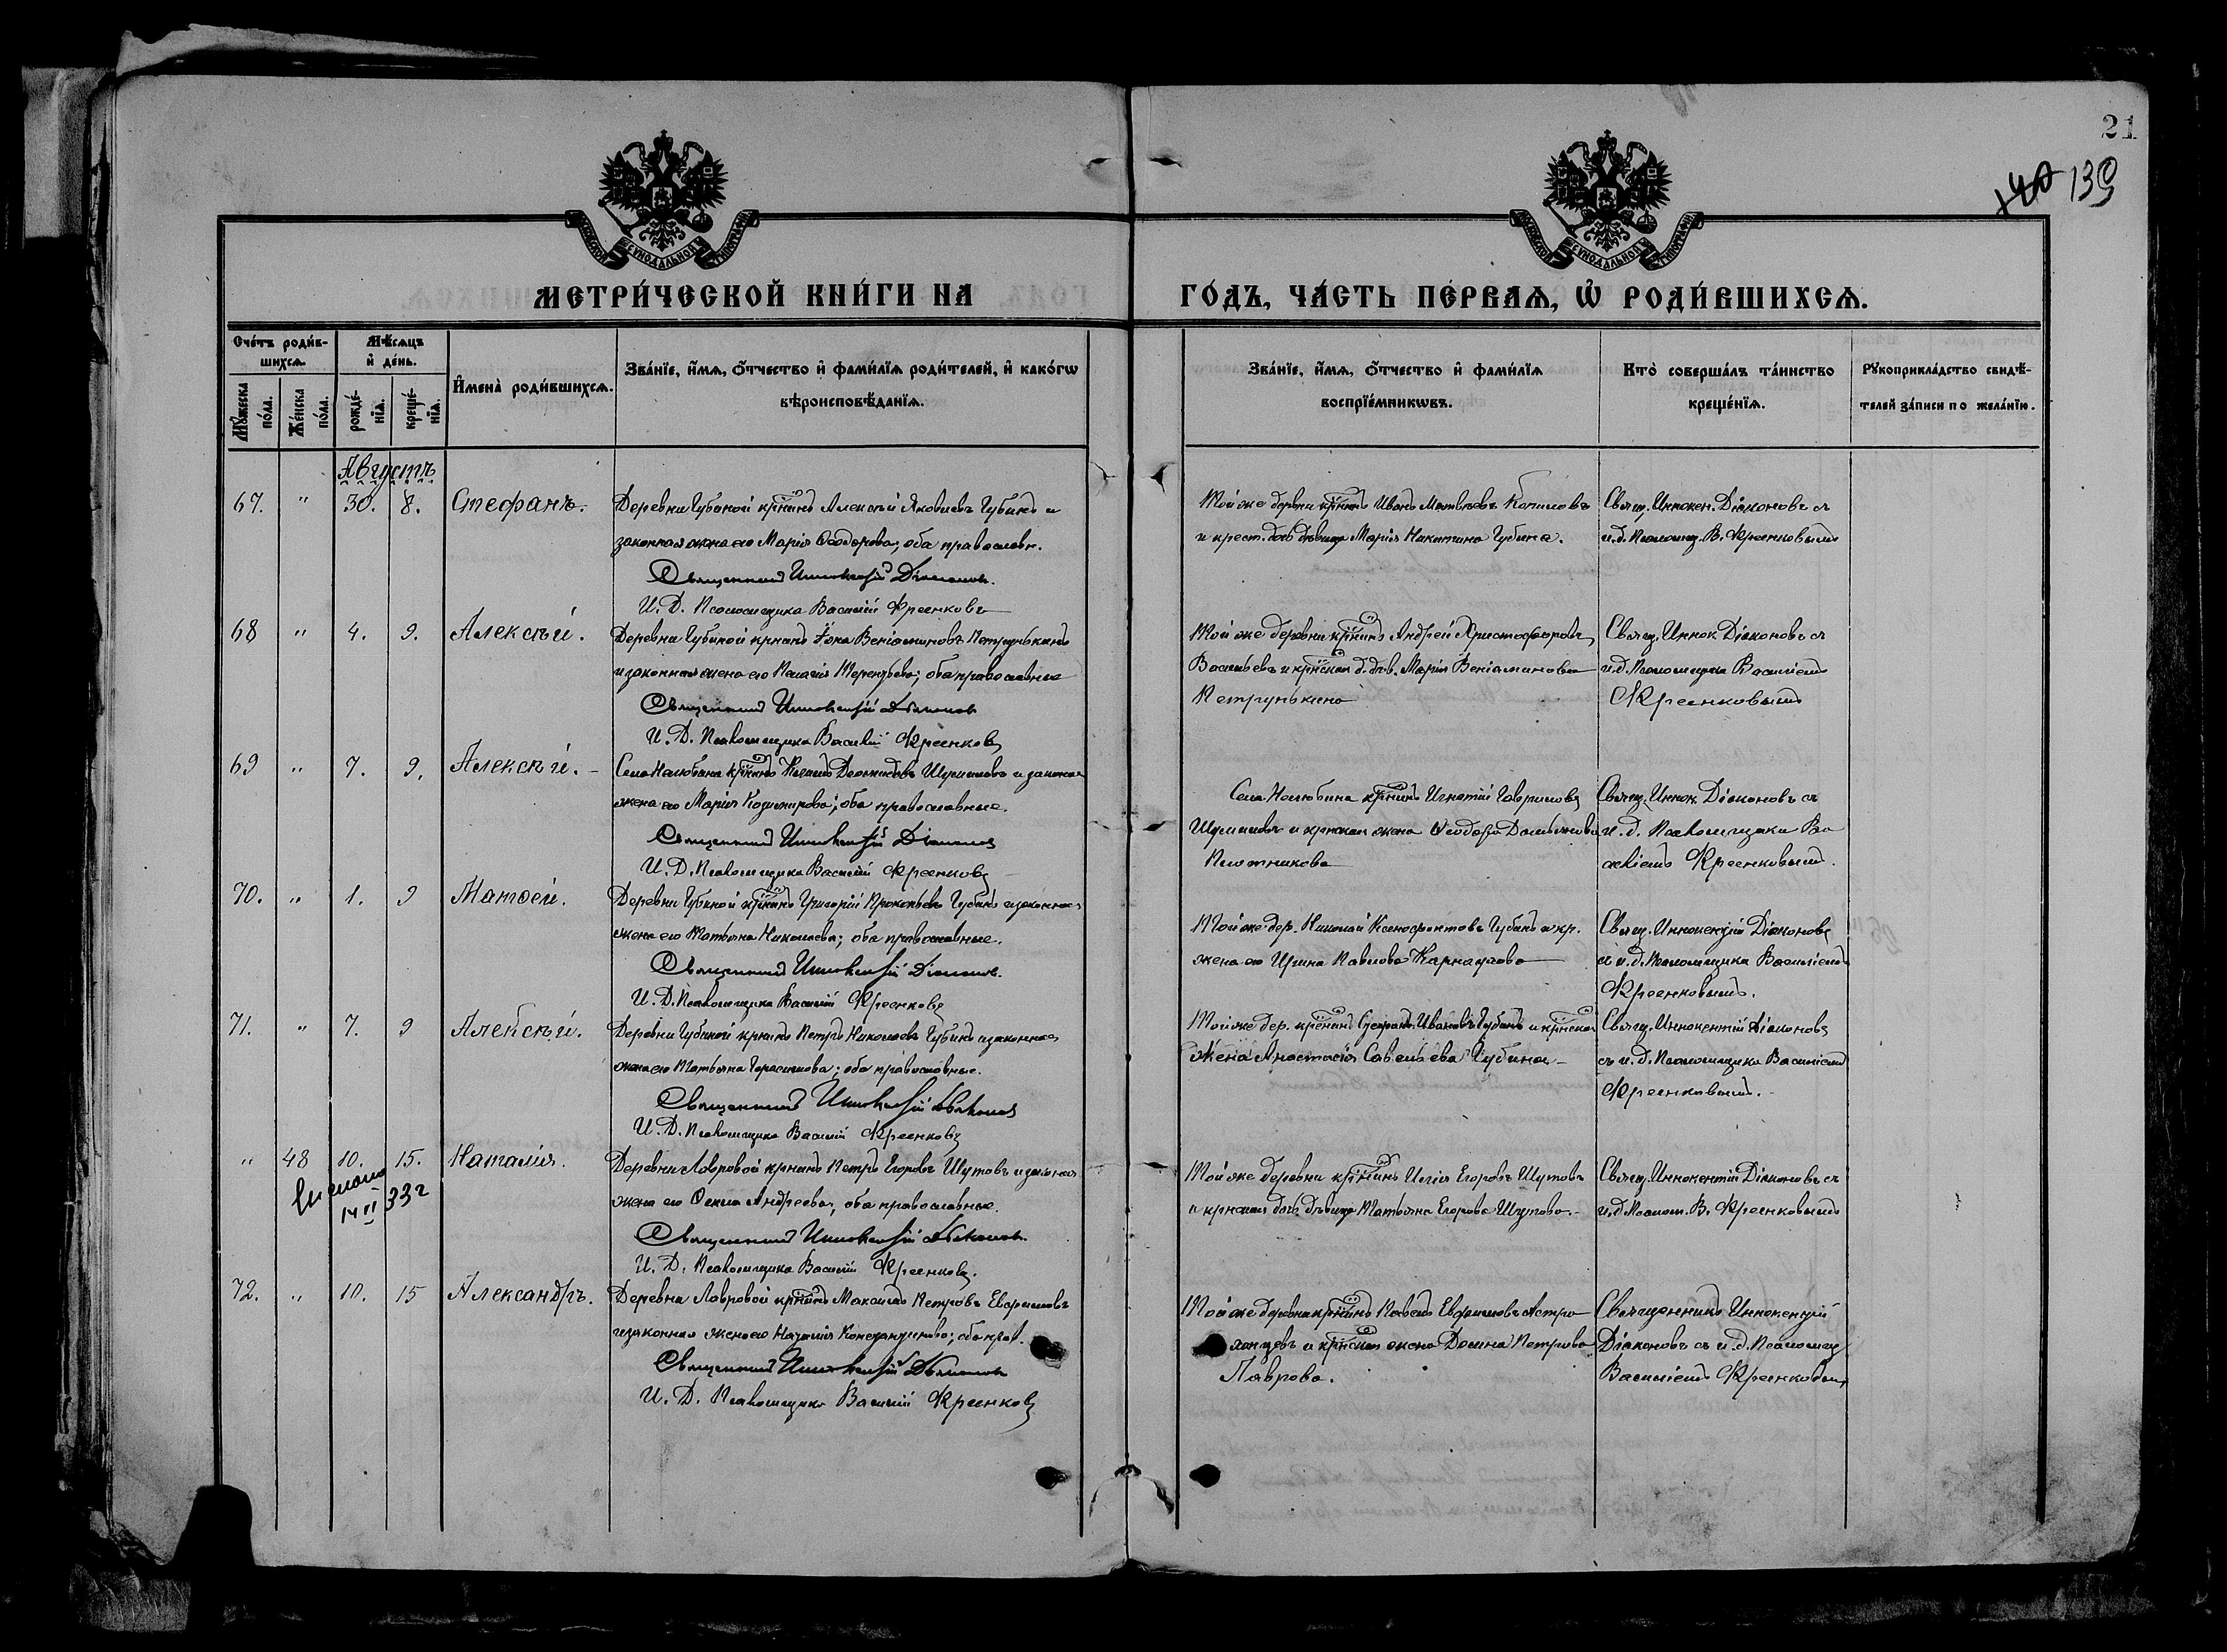 21
139
МОСКОВСКОЙ СѴНОДАЛЬНОЙ ТИПОГРАФІИ
МОСКОВСКОЙ СѴНОДАЛЬНОЙ ТИПОГРАФІИ
МЕТРИ́ЧЕСКОЙ КНИ́ГИ НА
ГО́ДЪ, ЧА́СТЬ ПЕ́РВАѦ, Ѽ РОДИ́ВШИХСѦ.
Сче́тъ роди́в-
шихсѧ.
Мꙋ́жеска по́ла.
Же́нска по́ла.
Мѣ́сѧцъ
и де́нь.
рожде́-нїѧ.
креще́-нїѧ.
Имена̀ роди́вшихсѧ.
Зва́нїе, и́мѧ, о́тчество и фами́лїѧ роди́телей, и како́гѡ
вѣроисповѣ́данїѧ.
Зва́нїе, и́мѧ, о́тчество и фами́лїѧ
воспрїе́мникѡвъ.
Кто̀ соверша́лъ та́инство
креще́нїѧ.
Рꙋкоприкла́дство свидѣ́-
телей за́писи по жела́нїю.
Августъ
67. " 30. 8. Стефанъ.
Деревни Губиной крнинъ Алексѣй Яковлевъ Губинъ и
законная жена его Марія Ѳеодорова; оба православн.
Священникъ Иннокентій Діаконовъ.
И. Д. Псаломщика Василій Креенковъ
Той же деревни крнинъ Иванъ Матвѣевъ Копыловъ
и крест. дочь дѣвица Марія Никитина Губина.
Свящ. Иннокен. Діаконовъ съ
и. д. Псаломщ. В. Креенковымъ
68 " 4. 9. Алексѣй.
Деревни Губиной крнинъ Іона Веніаминовъ Петрунькинъ
и законная жена его Пелагія Терентьева; оба православные
Священникъ Иннокентій Діаконовъ
И. Д. Псаломщика Василій Креенковъ
Той же деревни крнинъ Андрей Христофоровъ
Васильевъ и крнская д. дѣв. Марія Веніаминова
Петрунькина
Свящ. Иннок. Діаконовъ съ
и. д. Псаломщика Василіемъ
Креенковымъ
69 " 7. 9. Алексѣй.
Села Нелюбина крнинъ
Шумиловъ и законная
жена его Марія; оба православные.
Священникъ Иннокентій Діаконовъ
И. Д. Псаломщика Василій Креенковъ
Села Нелюбина крнинъ Игнатій Гавриловъ
Шумиловъ и крнская жена Ѳеодора Дамьянова
Плотникова
Свящ. Иннок. Діаконовъ съ
и. д. Псаломщика Ва
силіемъ Креенковымъ.
70. " 1. 9 Матѳей.
Деревни Губиной крнинъ Григорій Прокопьевъ Губинъ и законная
жена его Татьяна Николаева; оба православные.
Священникъ Иннокентій Діаконовъ.
И. Д. Псаломщика Василій Креенковъ
Той же дер. Николай Ксенофонтовъ Губинъ и кр.
жена его Ирина Павлова
Свящ. Иннокентій Діаконовъ
съ и. д. Псаломщика Василіемъ
Креенковымъ.
71. " 7. 9 Алексѣй.
Деревни Губиной крнинъ Петръ Николаевъ Губинъ и законная
жена его Татьяна Герасимова; оба православные.
Священникъ Иннокентій Діаконовъ
И. Д. Псаломщика Василій Креенковъ
Той же дер. крнинъ Стефанъ Ивановъ Губинъ и крнская
жена Анастасія Савельева Губина.
Свящ. Иннокентій Діаконовъ
съ и. д. Псаломщика Василіемъ
Креенковымъ.
" 48 10. 15. Наталія.
14 II 33 г
Деревни Лавровой крнинъ Петръ Егоровъ Шутовъ и законная
жена его Ѳекла Андреева; оба православные.
Священникъ Иннокентій Діаконовъ.
И. Д. Псаломщика Василій Креенковъ.
Той же деревни крнинъ Илія Егоровъ Шутовъ
и крнская дочь дѣвица Татьяна Егорова Шутова.
Свящ. Иннокентій Діаконовъ съ
и. д. Псалом. В. Креенковымъ
72. " 10. 15 Александръ.
Деревни Лавровой крнинъ Максимъ Петровъ
и законная жена его Наталія Константинова; оба прав.
Священникъ Иннокентій Діаконовъ
И. Д. Псаломщика Василій Креенковъ
Той же деревни крнинъ Павелъ Астра
ханцевъ и крнская жена Домна Петрова
Лаврова.
Священникъ Иннокентій
Діаконовъ съ и. д. Псаломщ.
Василіемъ Креенковым